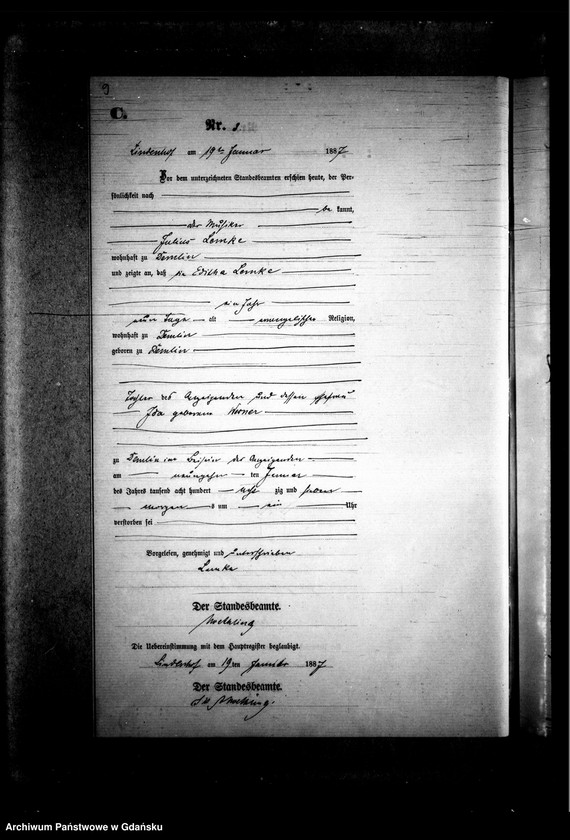 9
C.
Nr. 1.
Lindenhof am 19ten Januar 1887
Vor dem unterzeichneten Standesbeamten erschien heute, der Per-
sönlichkeit nach
be kannt,
der Musiker
Julius Lemke
wohnhaft zu Demlin
und zeigte an, daß die Editha Lemke
ein Jahr
neun Tage alt evangelischer Religion,
wohnhaft zu Demlin
geboren zu Demlin
Tochter des Anzeigenden und dessen Ehefrau
Ida geborenen
zu Demlin im Beisein des Anzeigenden
am neunzehn ten Januar
des Jahres tausend acht hundert acht zig und sieben
morgen s um ein Uhr
verstorben sei
Vorgelesen, genehmigt und unterschrieben
Lemke
Der Standesbeamte.
Die Uebereinstimmung mit dem Hauptregister beglaubigt.
Lindenhof am 19ten Januar 1887
Der Standesbeamte.
Archiwum Państwowe w Gdańsku